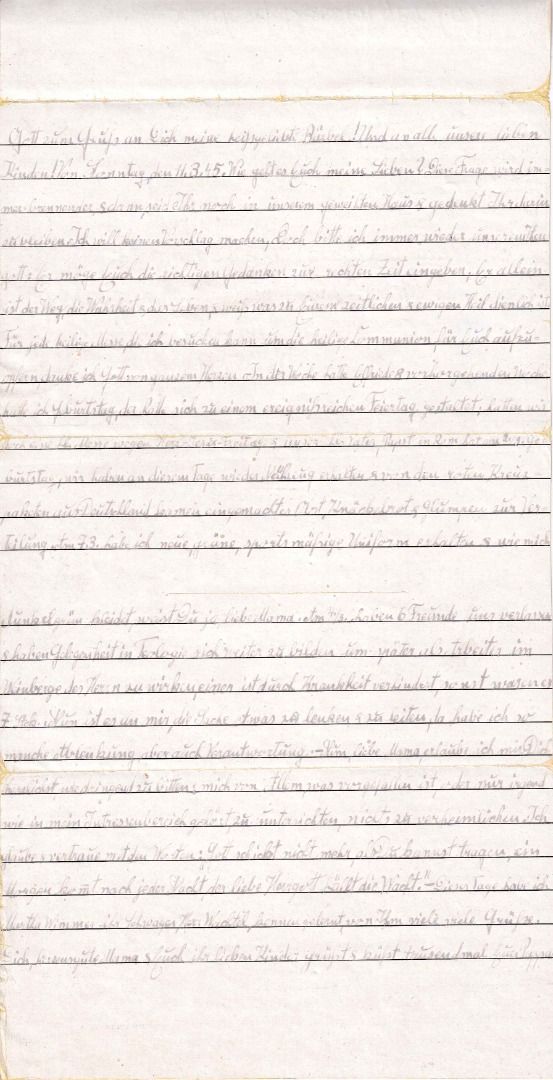 Gott zum Gruß an Dich meine heißgeliebte Rieber! Und an alle unsere lieben
Kinder! Vom Sonntag, den 11.3.45. Wie geht es Euch meine Lieben? Diese Frage wird im-
mer brennender, seid Ihr noch in unserem geweihten Haus & gedenkt Ihr darin
zu bleiben. Ich will keinen Vorschlag machen, doch bitte ich immer wieder unseren
Gott Er möge Euch die richtigen Gedanken zur rechten Zeit eingeben, Er allein
ist der Weg, die Wahrheit & das Leben & weiß was zu Eurem zeitlichen & ewigen Heil dienlich ist
Für jede heilige Messe, die ich besuchen kann, um die heilige Communion für Euch aufzu-
opfern, danke ich Gott von ganzem Herzen. In der Woche hatte Elfriede & vorhergehenden Woche
hatte ich Geburtstag, der hatte sich zu einem ereignisreichen Feiertag gestaltet, hatten wir
doch eine hl. Messe wegen & unser hl. Vater, Papst in Rom hat am 2.3. Ge-
burtstag, wir haben an diesem Tage wieder erhalten & von den roten Kreuz-
paketen aus Deutschland kommen eingemachtes Obst, Knäckebrot & zur Ver-
teilung. Am 7.3. habe ich neue, grüne, sportmäßige Uniform erhalten & wie mich
dunkelgrün kleidet weist Du ja liebe Mama. Am haben 6 Freunde uns verlassen
& haben Gelegenheit in Teologie sich weiter zu bilden um später als Arbeiter im
Weinberge des Herrn zu wirken, einer ist durch Krankheit verhindert, sonst waren es
7 Nun ist es an mir, die Sache etwas zu lenken & zu leiten, da habe ich so
manche Ablenkung, aber auch Verantwortung. – Nun, liebe Mama, erlaube ich mir Dich
herzlichst und dringend zu bitten & mich von Allem, was vorgefallen ist oder nur irgend
wie in mein Intressenbereich gehört, zu unterrichten, nichts zu verheimlichen. Ich
glaube & vertraue mit den Worten: „Gott schickt nicht mehr als Du kannst tragen, ein
Morgen komt nach jeder Nacht, der liebe Herrgott hält die Wacht." – Diese Tage habe ich
Martha Wimmer ihr Schwager Hans kennen gelernt, von Ihm viele viele Grüße.
Dich, herzensgute Mama & Euch ihr lieben Kinder grüßt & küßt tausendmal Euer Pappa